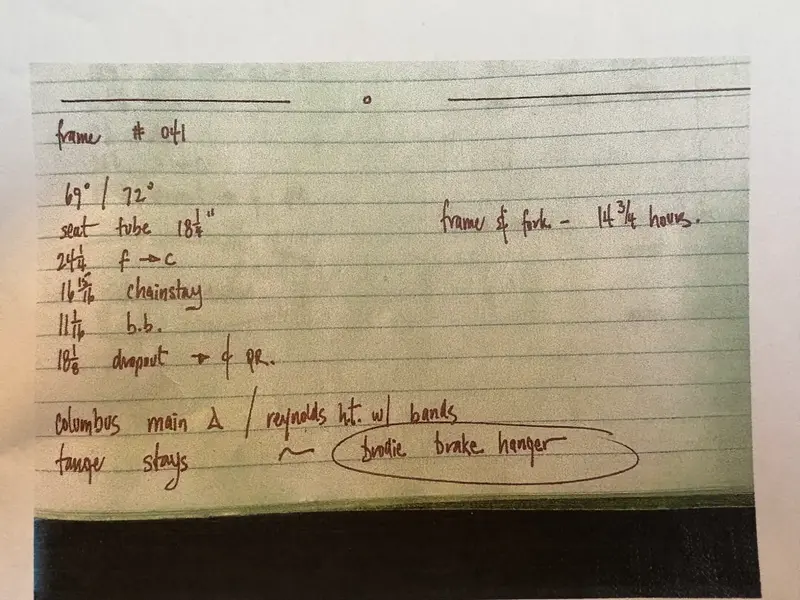 frame # 041
69° / 72°
seat tube 18 1/4"
frame & fork - 14 3/4 hours.
24 1/4 f → c
16 15/16 chainstay
11 1/16 b.b.
18 1/8 dropout → ¢ PR.
columbus main Δ / reynolds h.t. w/ bands
tange stays ~ brodie brake hanger